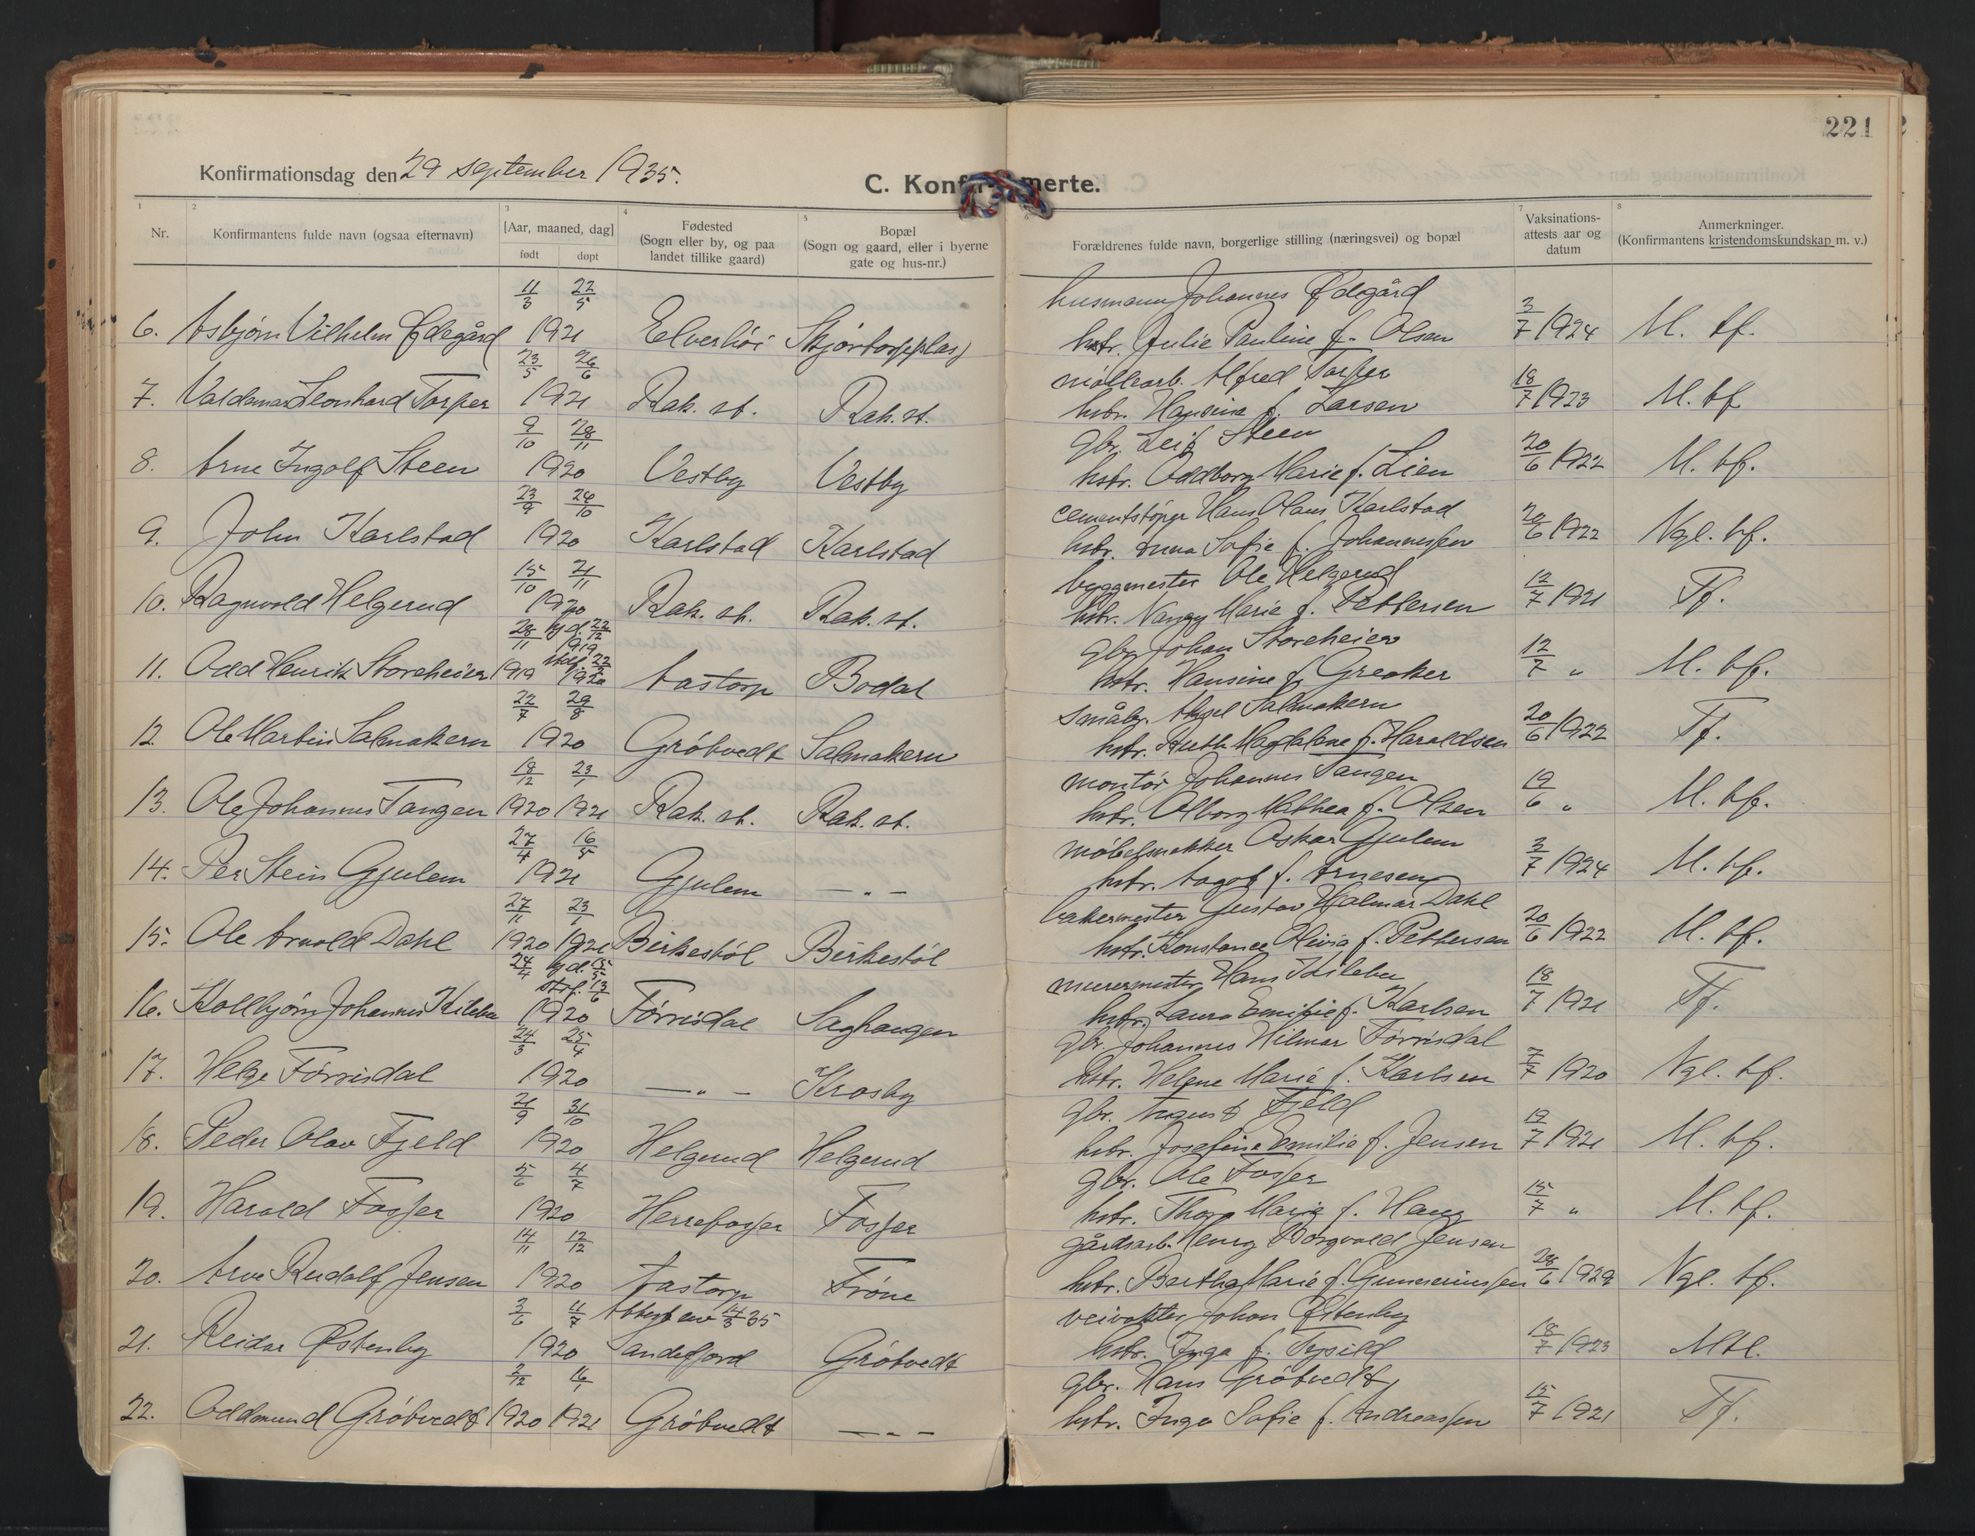 221
Konfirmationsdag den 29 september 1935.
C. Konfirmerte.
1 2 3 4 5 6 7 8
Nr.
Konfirmantens fulde navn (ogsaa efternavn)
[Aar, maaned, dag]
født døpt
Fødested
(Sogn eller by, og paa
landet tillike gaard)
Bopæl
(Sogn og gaard, eller i byerne
gate og hus-nr.)
Forældrenes fulde navn, borgerlige stilling (næringsvei) og bopæl
Vaksinations-
attests aar og
datum
Anmerkninger.
(Konfirmantens kristendomskundskap m. v.)
11/3 22/5 husmann Johannes Ødegård
6. Asbjørn Vilhelm Ødegård 1921 Elverhöi hstr. Julie Pauline f. Olsen 3/7 1924 M. tf.
23/5 26/6 møllearb. Alfred Torper
7. Valdemar Leonhard Torper 1921 Rak. st. Rak. st. hstr. Hansine f. Larsen 18/7 1923 M. tf.
9/10 28/11 gbr. Leif Steen
8. Arne Ingolf Steen 1920 Vestby Vestby hstr. Oddborg Marie f. Lien 20/6 1922 M. tf.
23/9 24/10 cementstøper Hans Olaus Karlstad
9. John Karlstad 1920 Karlstad Karlstad hstr. Anna Sofie f. Johannessen 20/6 1922 Ngl. tf.
15/10 21/11 byggmester Ole Helgerud
10. Ragnvald Helgerud 1920 Rak. st. Rak. st. hstr. Nanny Marie f. Pettersen 12/7 1921 Tf.
28/11 hjd. 22/12 1919 gbr. Johan Storeheier
11. Odd Henrik Storeheier 1919 1920 Aastorp Bodal hstr. Hansine f. Greaker 12/7 " M. tf.
22/7 29/8 småbr. Aksel Salmakern
12. Ole Martin Salmakern 1920 Grötvedt Salmakern hstr. Ruth Magdalene f. Haraldsen 20/6 1922 Tf.
18/12 23/1 montör Johannes Tangen
13. Ole Johannes Tangen 1920 1921 Rak. st. Rak. st. hstr. Olborg Mathea f. Olsen 19/6 " M. tf.
27/4 16/5 møbelsnekker Oskar Gjulem
14. Per Stein Gjulem 1921 Gjulem — " — hstr. Aagot f. Arnesen 3/7 1924 M. tf.
27/11 23/1 bakermester Gustav Hjalmar Dahl
15. Ole Arnold Dahl 1920 1921 Birkestöl Birkestöl hstr. Konstance Olivia f. Pettersen 20/6 1922 M. tf.
24/4 hjd. 15/5 13/6 murermester Hans Kilebu
16. Kollbjørn Johannes Kilebu 1920 Törrisdal Saghaugen hstr. Laura Emilie f. Karlsen 18/7 1921 Tf.
24/3 25/4 gbr. Johannes Hilmar Törrisdal
17. Helge Törrisdal 1920 — " — Krosby hstr. Helene Marie f. Karlsen 7/7 1920 Ngl. tf.
21/9 31/10 gbr. August Fjeld
18. Peder Olav Fjeld 1920 Helgerud Helgerud hstr. Josefine Emilie f. Jensen 19/7 1921 M. tf.
5/6 4/7 gbr. Ole Fosser
19. Harald Fosser 1920 Herrefosser Fosser hstr. Thora Marie f. Haug 15/7 " M. tf.
14/11 12/12 gårdsarb. Henry Borgvald Jensen
20. Arve Rudolf Jensen 1920 Aastorp Fröne hstr. Bertha Marie f. Gunneriussen 28/6 1929 Ngl. tf.
3/6 11/7 veivokter Johan Østenby
21. Reidar Østenby 1920 Sandefjord Grötvedt hstr. Inga f. 18/7 1923 Mtl.
2/12 16/1 gbr. Hans Grötvedt
22. Oddmund Grötvedt 1920 1921 Grötvedt — " — hstr. Inga Sofie f. Andreassen 15/7 1921 Tf.